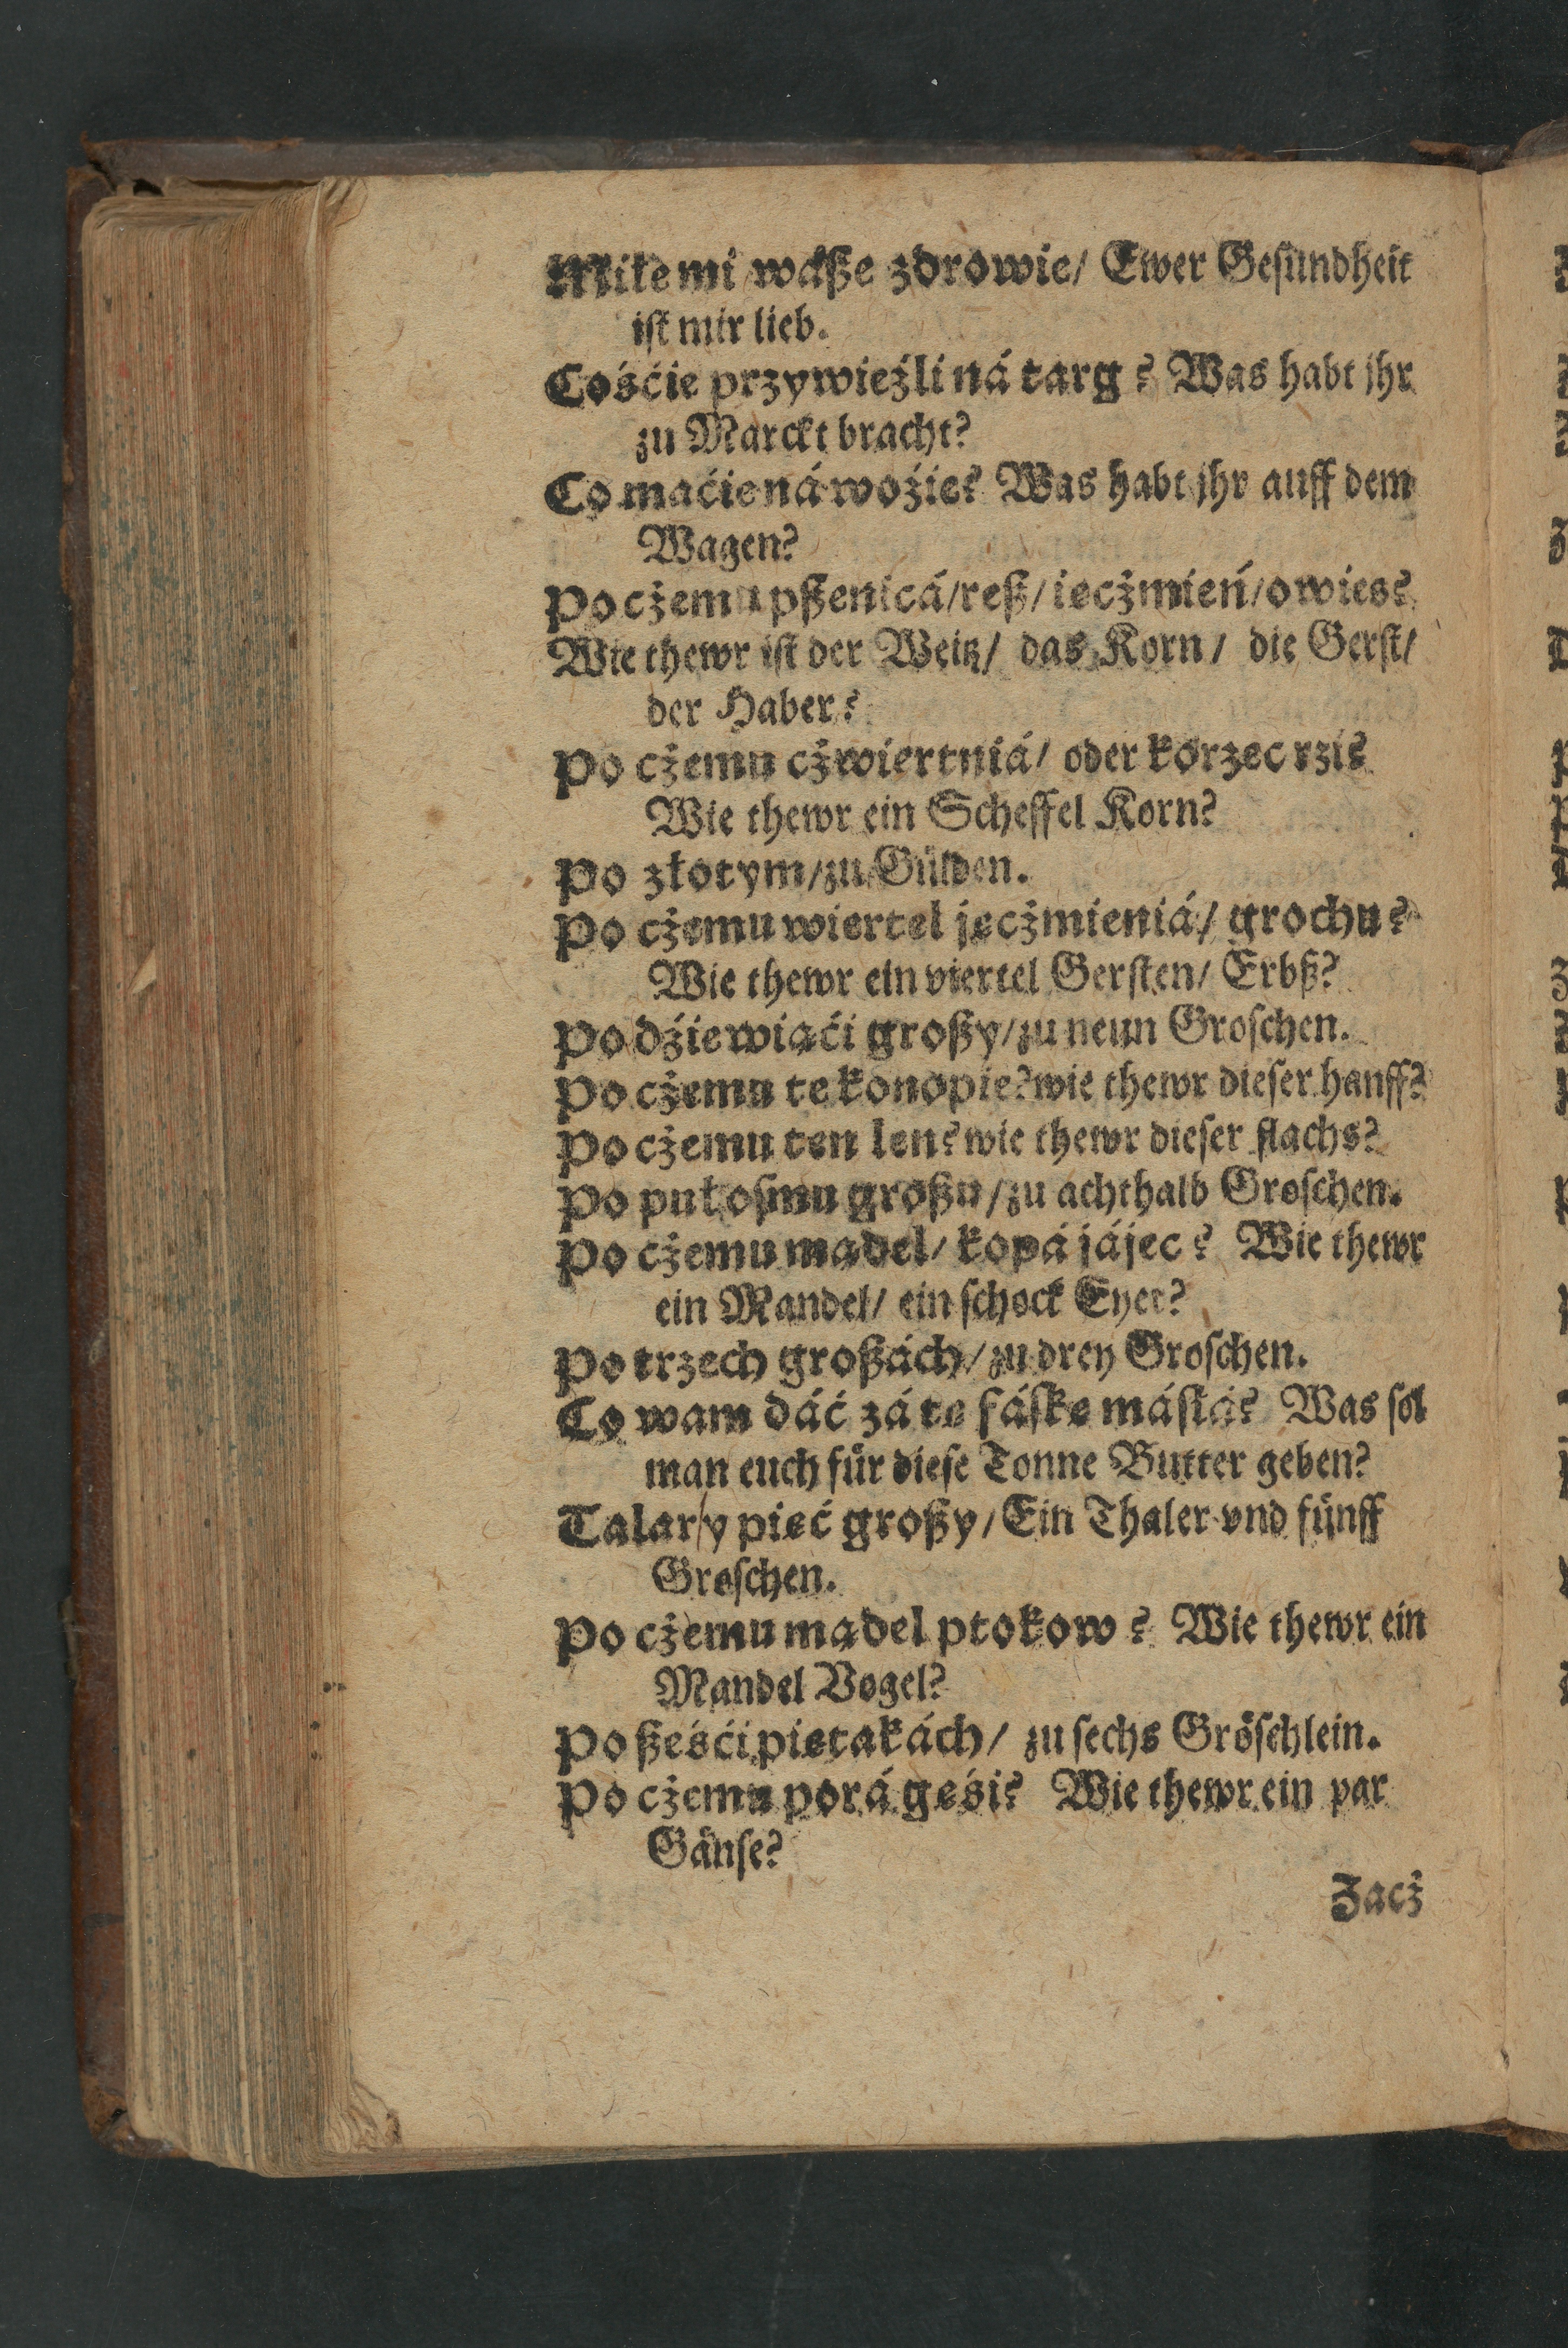 Miłe mi wáße zdrowie/ Ewer Gesundheit
ist mir lieb.
Cośćie przywieźli ná targ? Was habt jhr
zu Marckt bracht?
Co maćie ná woźie? Was habt jhr auff dem
Wagen?
Po cżemu pßenicá/reß/iecżmień/owies?
Wie thewr ist der Weitz/ das Korn/ die Gerst/
der Haber?
Po cżemu cżwiertniá/ oder korzec rzi?
Wie thewr ein Scheffel Korn?
Po złotym/zu Gülden.
Po cżemu wiertel jecżmieniá/ grochu?
Wie thewr ein viertel Gersten/ Erbß?
Po dźiewiąći großy/zu neun Groschen.
Po cżemu te konopie?wie thewr dieser hanff?
Po cżemu ten len?wie thewr dieser flachs?
Po puł osmu großu/zu achthalb Groschen.
Po cżemu mądel/ kopá jájec? Wie thewr
ein Mandel/ ein schock Eyer?
Po trzech großách/zu drey Groschen.
Co wam dáć zá tę fáskę másłá? Was sol
man euch für diese Tonne Butter geben?
Talar/y pięć großy/Ein Thaler vnd fünff
Groschen.
Po cżemu mądel ptokow? Wie thewr ein
Mandel Vogel?
Po ßeśći piętakách/ zu sechs Gröschlein.
Po cżemu porá gęśi? Wie thewr ein par
Gänse?
Zacż